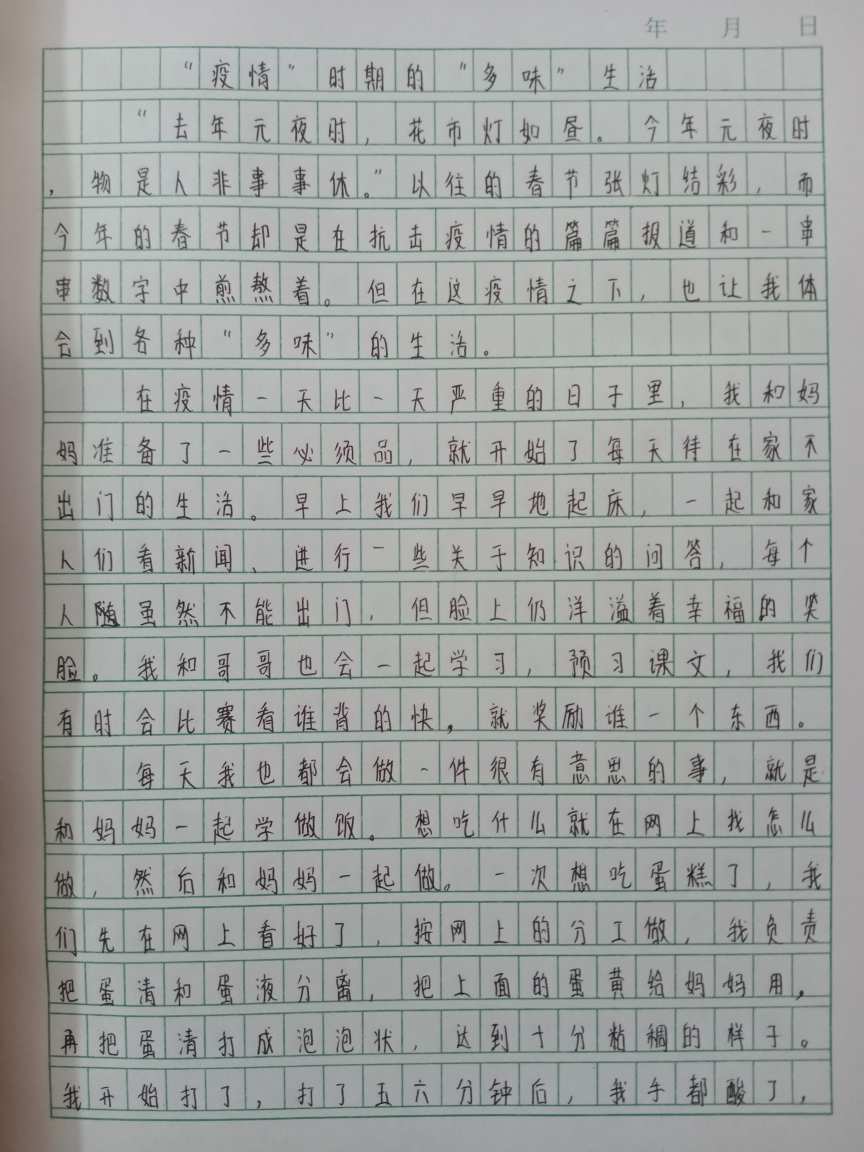 年 月 日
“疫情”时期的“多味”生活
“去年元夜时，花市灯如昼。今年元夜时
，物是人非事事休。”以往的春节张灯结彩，而
今年的春节却是在抗击疫情的篇篇报道和一串
串数字中煎熬着。但在这疫情之下，也让我体
会到各种“多味”的生活。
在疫情一天比一天严重的日子里，我和妈
妈准备了一些必须品，就开始了每天待在家不
出门的生活。早上我们早早地起床，一起和家
人们看新闻、进行一些关于知识的问答，每个
人随虽然不能出门，但脸上仍洋溢着幸福的笑
脸。我和哥哥也会一起学习，预习课文，我们
有时会比赛看谁背的快，就奖励谁一个东西。
每天我也都会做一件很有意思的事，就是
和妈妈一起学做饭。想吃什么就在网上找怎么
做，然后和妈妈一起做。一次想吃蛋糕了，我
们先在网上看好了，按网上的分工做，我负责
把蛋清和蛋液分离，把上面的蛋黄给妈妈用，
再把蛋清打成泡泡状，达到十分粘稠的样子。
我开始打了，打了五六分钟后，我手都酸了，